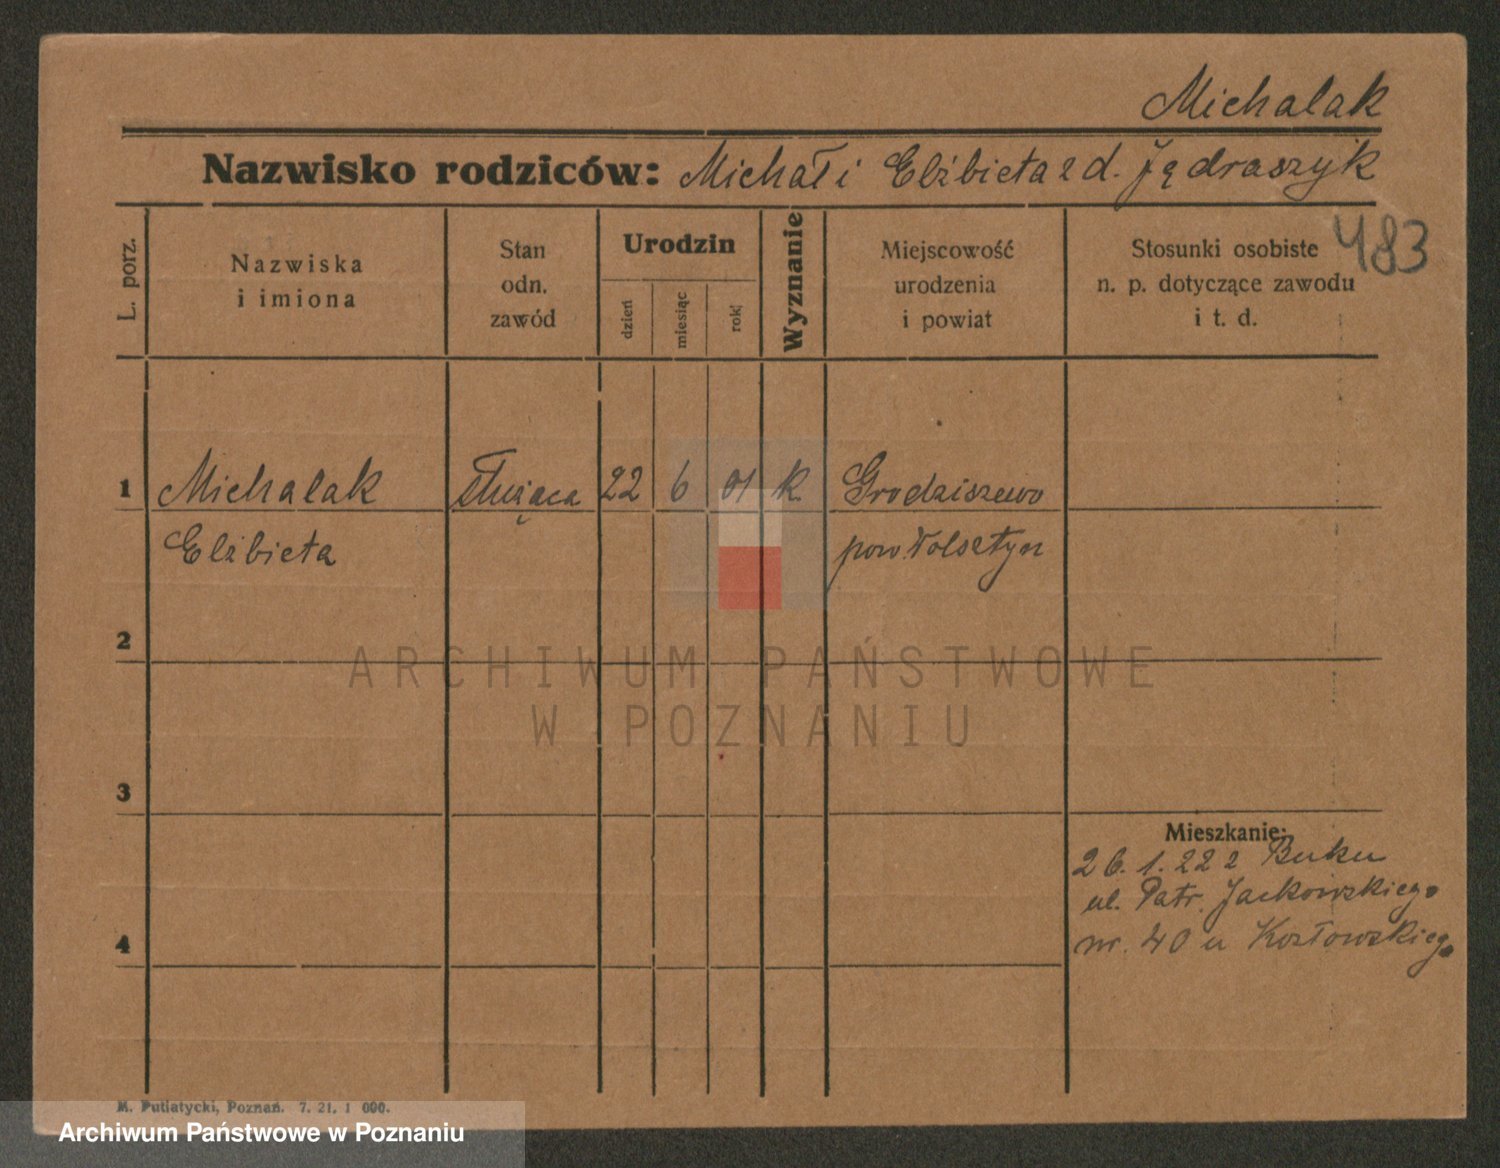 Michalak
Nazwisko rodziców: Michał i Elżbieta z d. Jędraszyk
483
L. porz.
Nazwiska
i imiona
Stan
odn.
zawód
Urodzin
dzień
miesiąc
rok
Wyznanie
Miejscowość
urodzenia
i powiat
Stosunki osobiste
n. p. dotyczące zawodu
i t. d.
1 Michalak służąca 22 6 01 k. Grodziszewo
Elżbieta pow. Wolsztyn
2
ARCHIWUM PAŃSTWOWE
W POZNANIU
3
Mieszkanie:
26.1.22 z Buku
ul. Patr. Jackowskiego
4 nr. 40 u Kozłowskiego
M. Putiatycki, Poznań. 7. 21. 1 000.
Archiwum Państwowe w Poznaniu